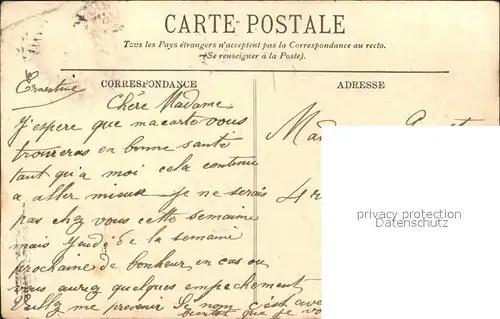 CARTE POSTALE
Tous les Pays étrangers n'acceptent pas la Correspondance au recto.
(Se renseigner à la Poste).
CORRESPONDANCE
ADRESSE
Ernestine
Chére Madame
J'espere que ma carte vous
trouveras en bonne santé
tant qu'a moi cela continu
a aller mieux je ne serais
pas chez vous cette semaine
mais Jeudi de la semaine
prochaine de bonheur, en cas ou
vous auriez quelques empechement
Veuillez me prevenir Si non c'est avec
bientot que je vo
Mad
4 r
privacy protection
Datenschutz